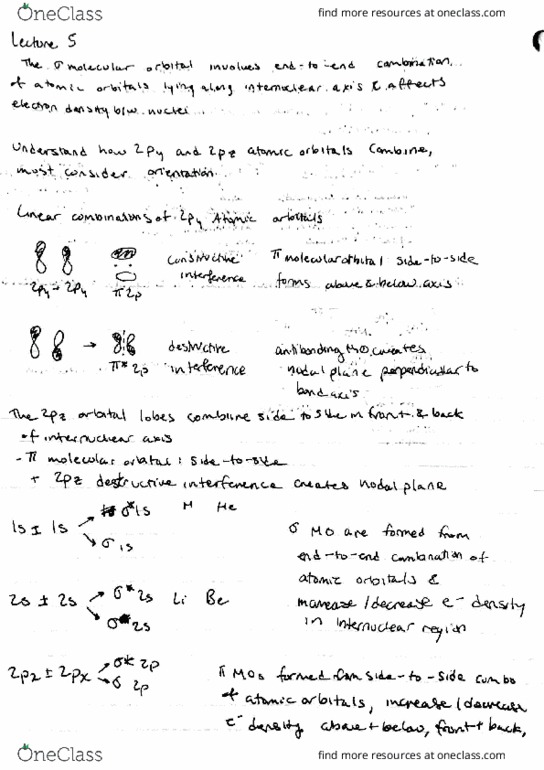 OneClass find more resources at oneclass.com
Lecture 5
The σ molecular orbital involves end-to-end combination
of atomic orbitals lying along internuclear axis & affects
electron density b/w nuclei
Understand how 2py and 2pz atomic orbitals combine,
must consider orientation
Linear combinations of 2py Atomic orbitals
constructive interference
π molecular orbital side-to-side
forms above & below axis
2py - 2py π 2p
destructive interference
antibonding MO, creates
nodal plane perpendicular to
bond axis
→ π* 2p
The 2pz orbital lobes combine side to side in front & back
of internuclear axis
- π molecular orbital: side-to-side
+ 2pz destructive interference creates nodal plane
1s ± 1s σ*1s σ 1s H He
σ MO are formed from
end-to-end combination of
atomic orbitals &
increase/decrease e⁻ density
in internuclear region
2s ± 2s σ* 2s σ* 2s Li Be
2pz ± 2px σ* 2p σ 2p
π MOs formed from side-to-side combo
of atomic orbitals, increase/decrease
e⁻ density above + below, front + back,
OneClass find more resources at oneclass.com